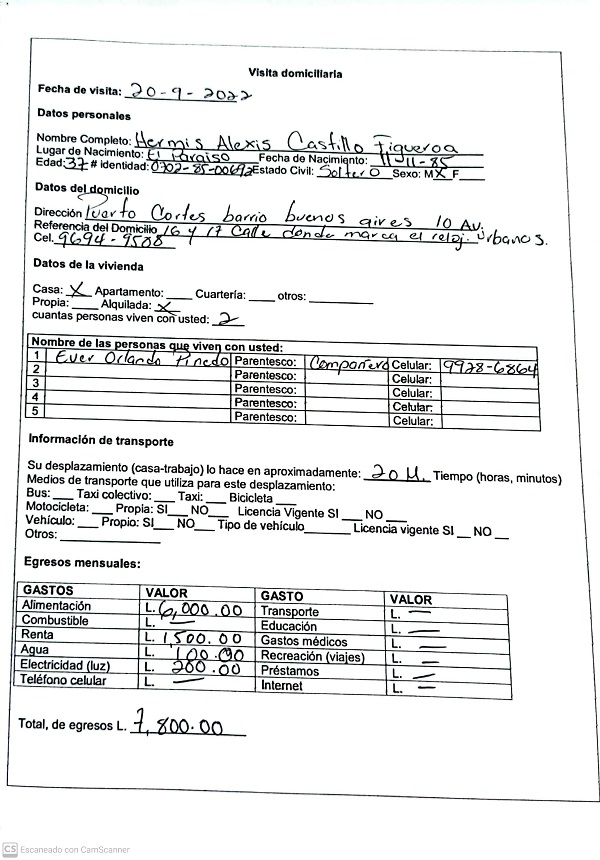 Visita domiciliaria
Fecha de visita: 20-9-2022
Datos personales
Nombre Completo: Hermis Alexis Castillo Figueroa
Lugar de Nacimiento: El Paraiso Fecha de Nacimiento: 11-11-85
Edad: 37 # identidad: 0702-85-00692 Estado Civil: Soltero Sexo: M X F___
Datos del domicilio
Dirección Puerto Cortes barrio buenos aires 10 Av.
Referencia del Domicilio 16 y 17 Calle donde marca el reloj. Urbanos.
Cel. 9694-9508
Datos de la vivienda
Casa: X Apartamento: ____ Cuartería: ____ otros: __________
Propia: ____ Alquilada: X
cuantas personas viven con usted: 2
Nombre de las personas que viven con usted:
1 Ever Orlando Pinedo Parentesco: Compañero Celular: 9928-6864
2 Parentesco: Celular:
3 Parentesco: Celular:
4 Parentesco: Celular:
5 Parentesco: Celular:
Información de transporte
Su desplazamiento (casa-trabajo) lo hace en aproximadamente: 20 M. Tiempo (horas, minutos)
Medios de transporte que utiliza para este desplazamiento:
Bus: ___ Taxi colectivo: ___ Taxi: ___ Bicicleta ___
Motocicleta: ___ Propia: SI___ NO___ Licencia Vigente SI ___ NO ___
Vehículo: ___ Propio: SI___ NO___ Tipo de vehículo_______ Licencia vigente SI __ NO __
Otros: _______________
Egresos mensuales:
GASTOS VALOR GASTO VALOR
Alimentación L. 6,000.00 Transporte L. —
Combustible L. — Educación L. —
Renta L. 1,500.00 Gastos médicos L. —
Agua L. 100.00 Recreación (viajes) L. —
Electricidad (luz) L. 200.00 Préstamos L. —
Teléfono celular L. — Internet L. —
Total, de egresos L. 7,800.00
CS Escaneado con CamScanner